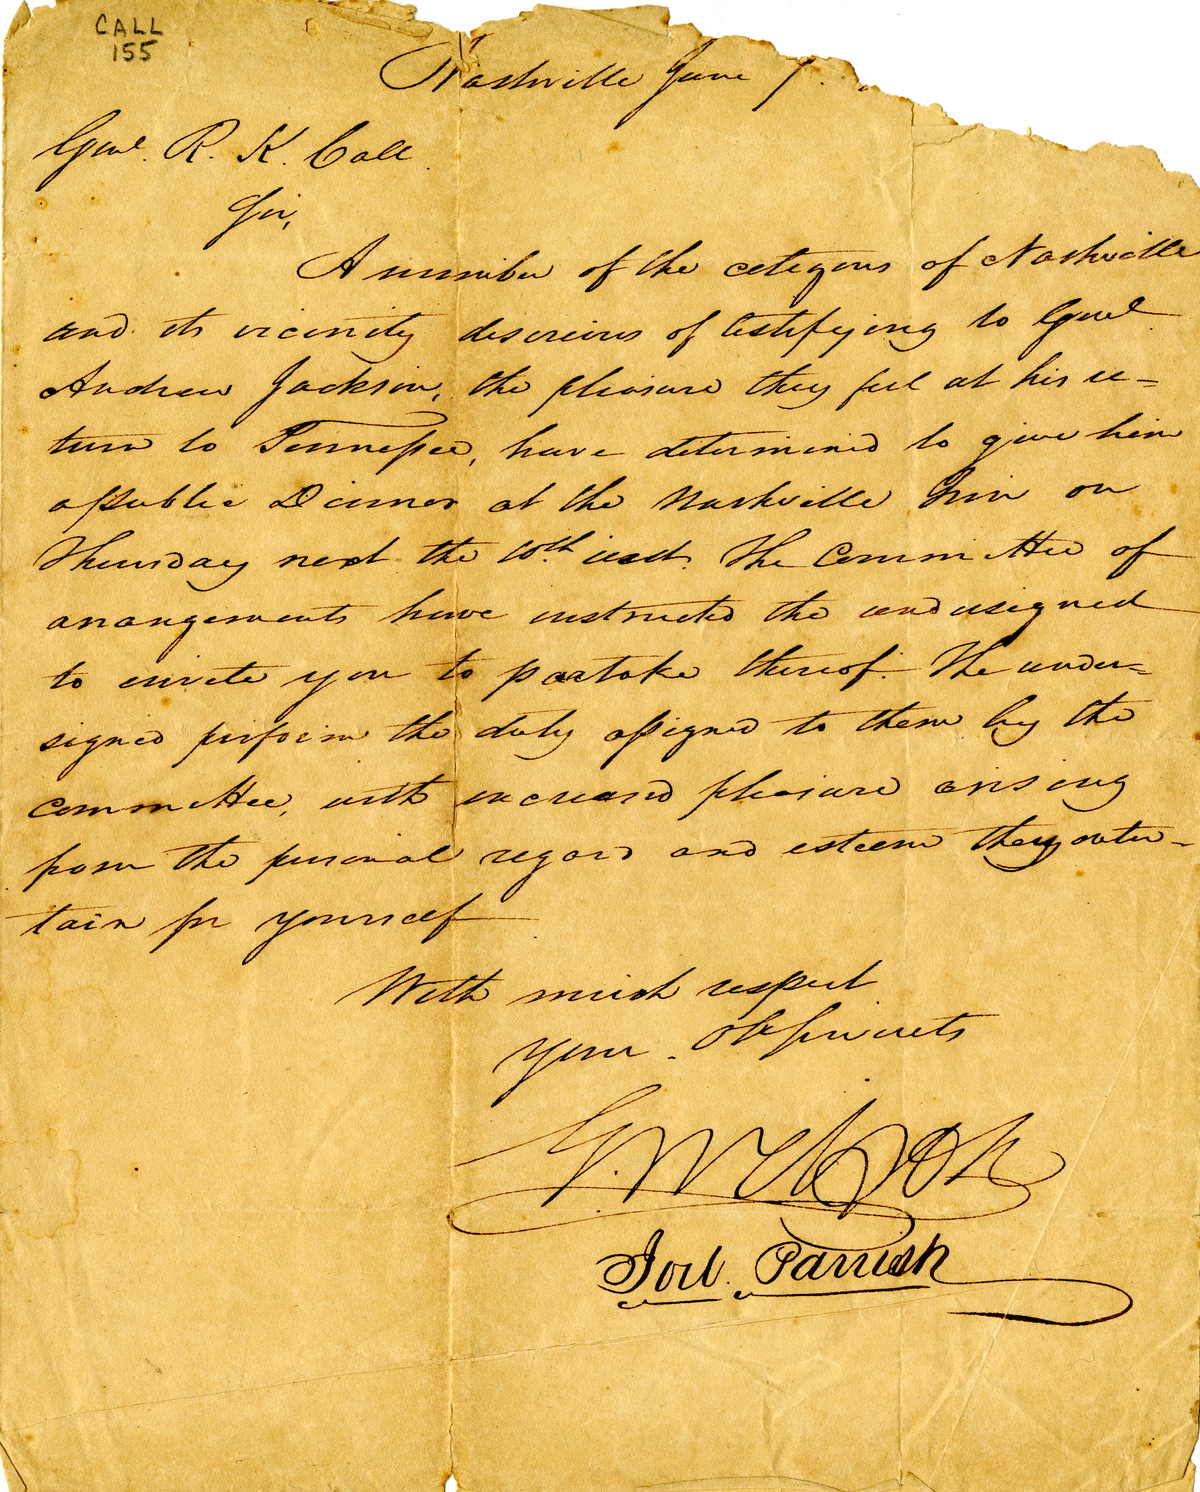 CALL
155
Nashville June 7.
Genl. R. K. Call.
Sir,
A number of the citizens of Nashville
and its vicinity desireius of testifying to Genl.
Andrew Jackson, the pleasure they feel at his re=
turn to Tennessee, have determined to give him
a public Dinner at the Nashville Inn on
Thursday next the 10th. inst. The Committee of
arrangements have instructed the undersigned
to invite you to partake thereof. The under=
signed perform the duty assigned to them by the
committee, with increased pleasure arising
from the personal regard and esteem they enter-
tain for yourself
With much respect
your. Ob Servants
G. W.
Joel. Parrish